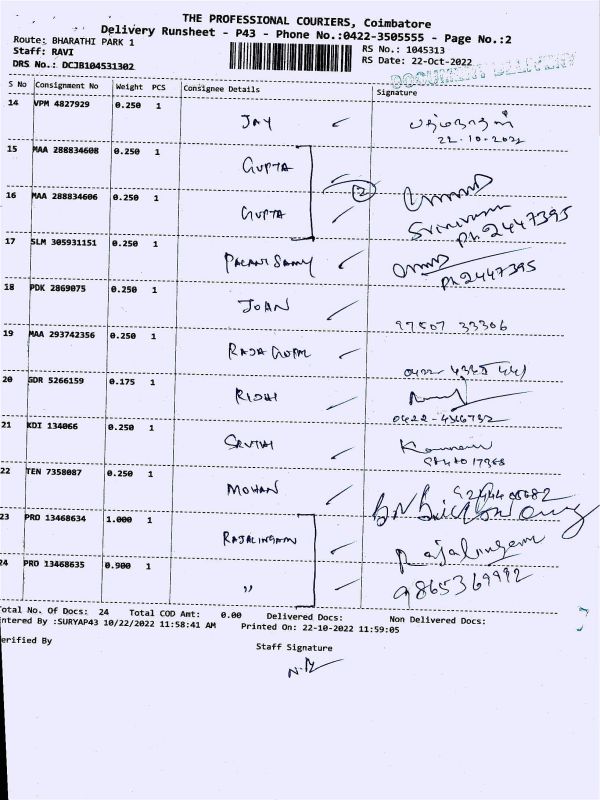 THE PROFESSIONAL COURIERS, Coimbatore
Delivery Runsheet - P43 - Phone No.:0422-3505555 - Page No.:2
Route: BHARATHI PARK 1
RS No.: 1045313
Staff: RAVI
RS Date: 22-Oct-2022
DRS No.: DCJB104531302
DOCUMENT DELIVERY
S No Consignment No Weight PCS Consignee Details Signature
14 VPM 4827929 0.250 1 JAY
22.10.2022
15 MAA 288834608 0.250 1 GUPTA
2
16 MAA 288834606 0.250 1 GUPTA
Srinivasan
Ph 2447395
17 SLM 305931151 0.250 1 PALANI SAMY
Ph 2447395
18 PDK 2869075 0.250 1 JOAN
97507 33306
19 MAA 293742356 0.250 1 RAJA GOPAL
20 GDR 5266159 0.175 1 RISHI
21 KDI 134066 0.250 1
22 TEN 7358087 0.250 1 MOHAN
23 PRO 13468634 1.000 1 RAJALINGAM
Rajalingam
24 PRO 13468635 0.900 1 "
9865369992
Total No. Of Docs: 24 Total COD Amt: 0.00 Delivered Docs: Non Delivered Docs:
Entered By :SURYAP43 10/22/2022 11:58:41 AM Printed On: 22-10-2022 11:59:05
Verified By
Staff Signature